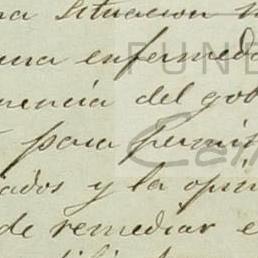 na situacion
una enfermeda
nencia del gob
para permit
iados y la opin
de remediar e